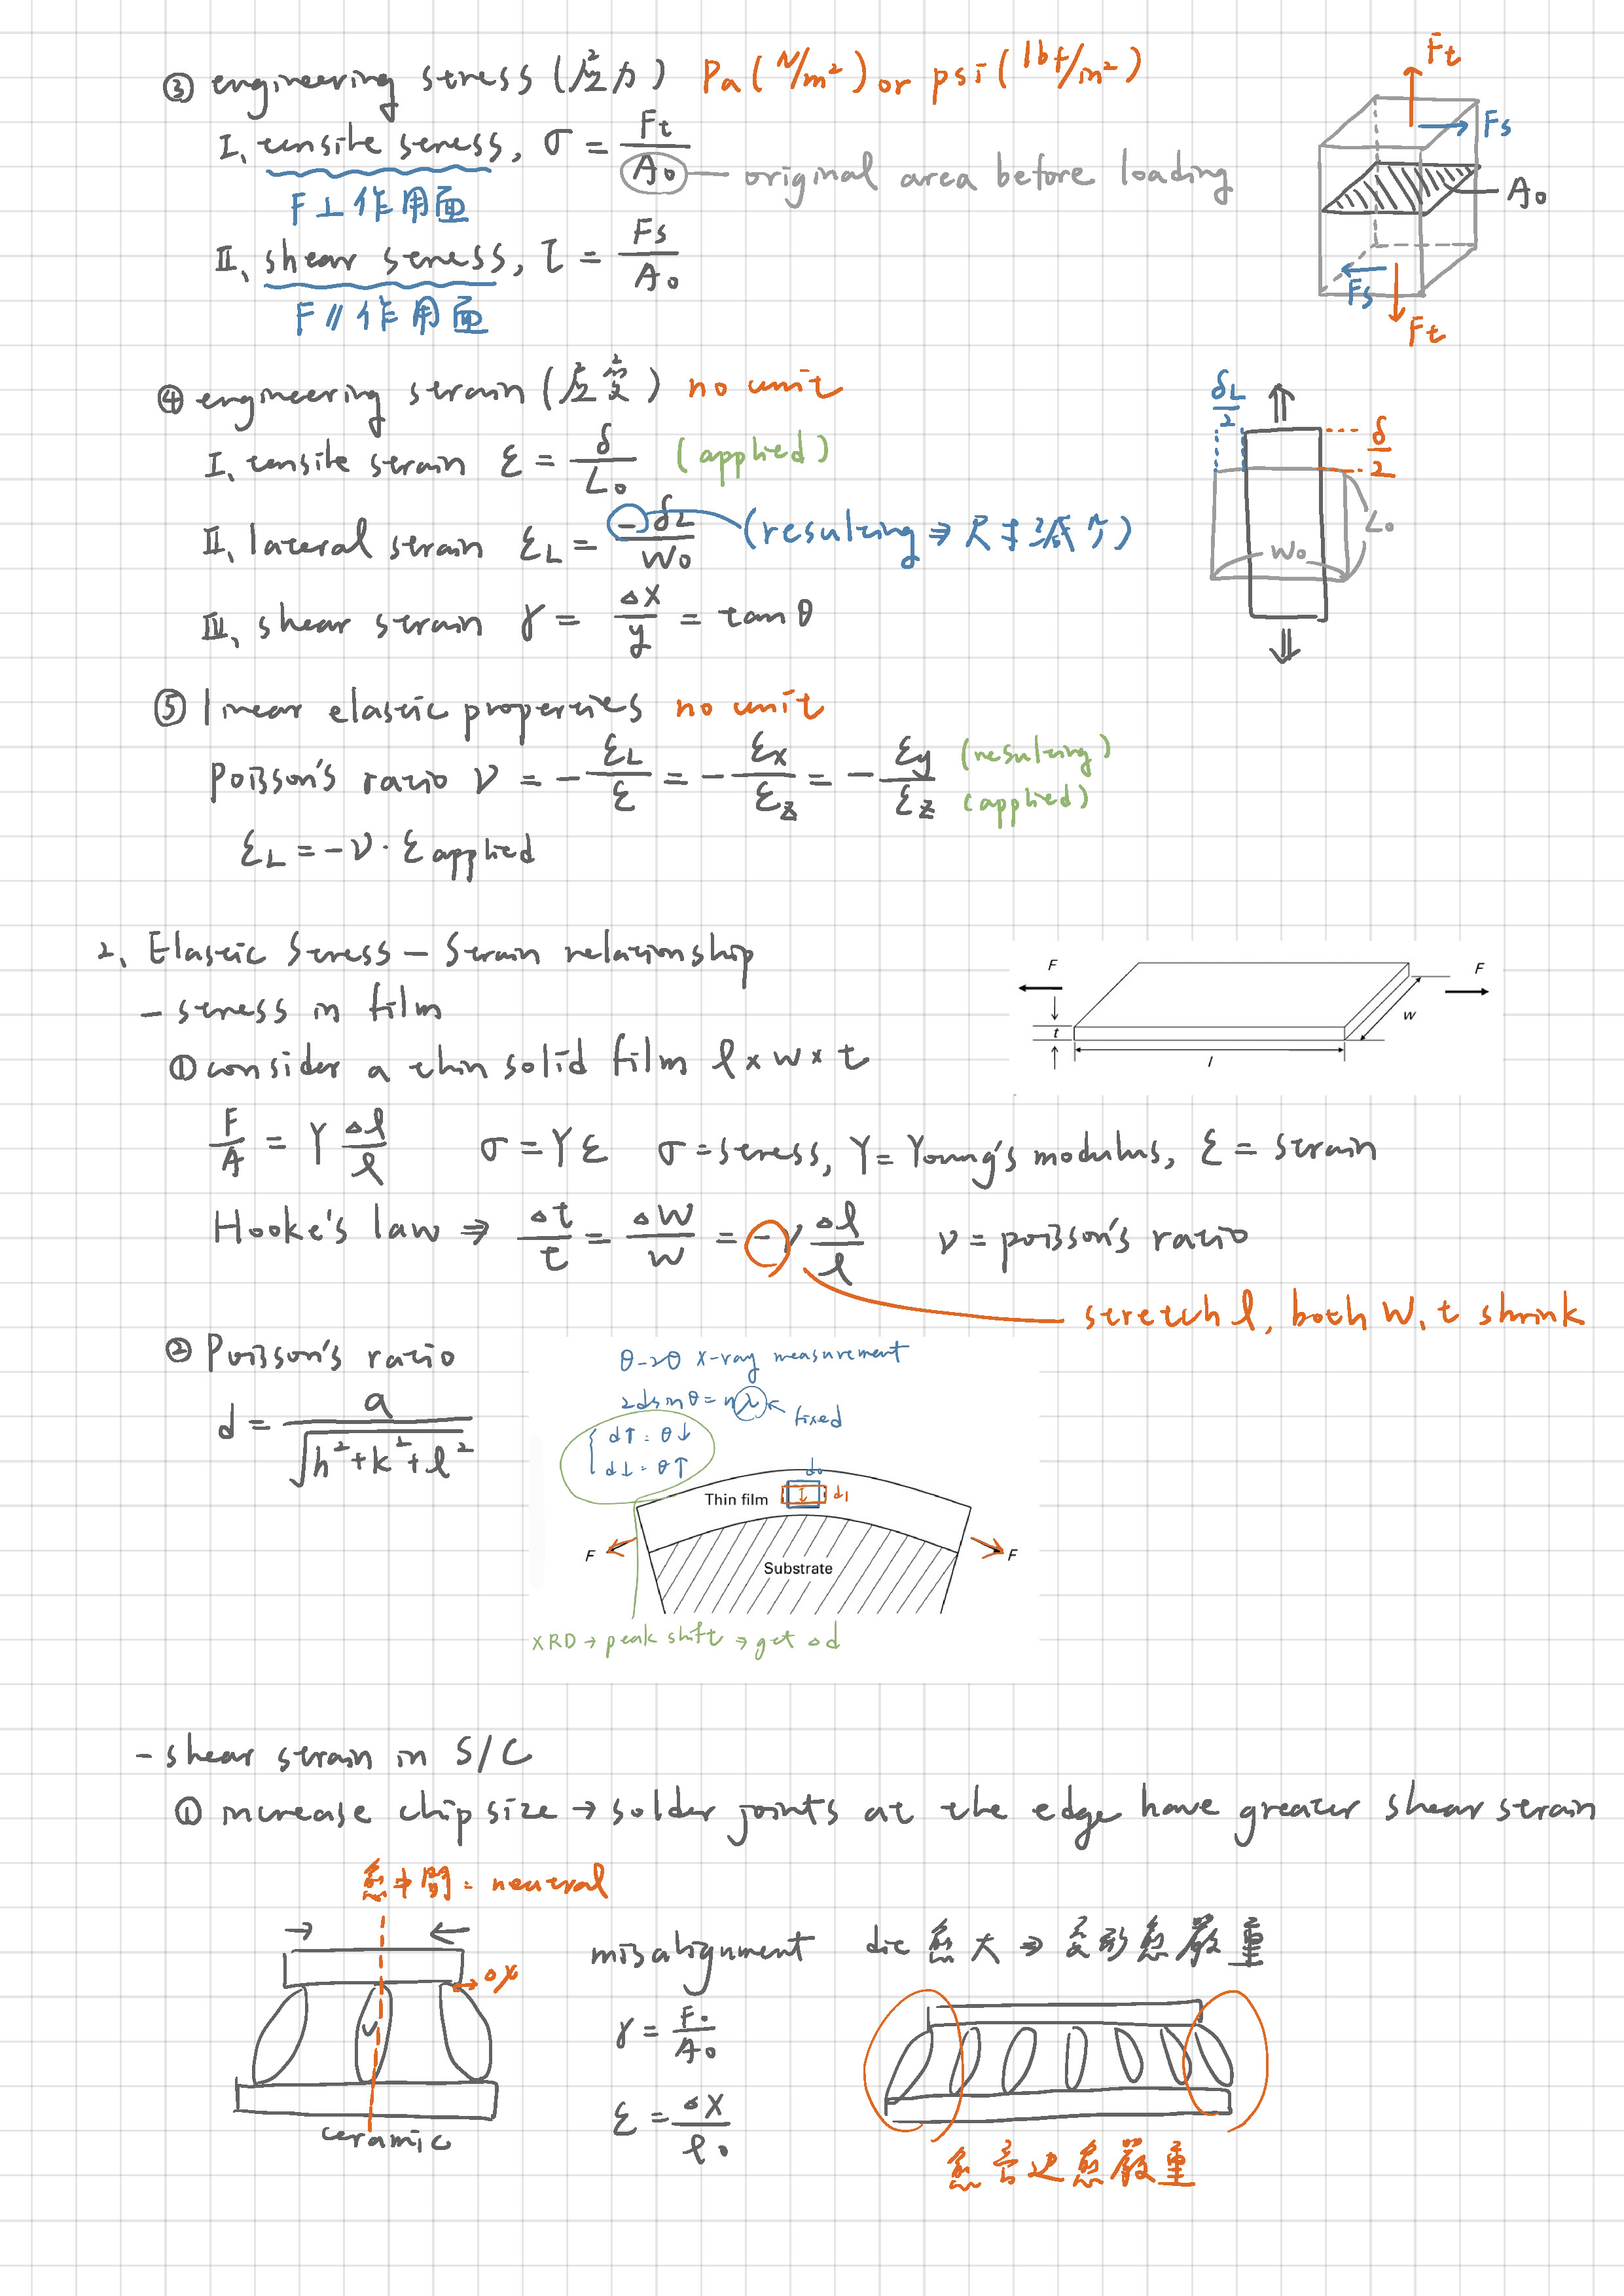 ③ engineering stress (應力) Pa (N/m²) or psi (lbf/in²)
I、tensile stress, σ = Ft/A₀ — original area before loading
F⊥作用面
II、shear stress, τ = Fs/A₀
F∥作用面
Ft
Fs
A₀
Fs
Ft
④ engineering strain (應變) no unit
I、tensile strain ε = δ/L₀ (applied)
II、lateral strain εL = -δL/W₀ (resulting ⇒ 尺寸減少)
III、shear strain γ = ΔX/y = tan θ
δL/2
δ/2
L₀
W₀
⑤ linear elastic properties no unit
Poisson's ratio ν = -εL/ε = -εx/εz = -εy/εz (resulting) (applied)
εL = -ν · ε applied
2、Elastic Stress - Strain relationship
- stress in film
① consider a thin solid film l × w × t
F
F
t
w
l
F/A = Y Δl/l σ = Yε σ = stress, Y = Young's modulus, ε = strain
Hooke's law ⇒ Δt/t = ΔW/W = -ν Δl/l ν = poisson's ratio
stretch l, both W, t shrink
② Poisson's ratio
d = a/√(h²+k²+l²)
θ-2θ X-ray measurement
2d sin θ = nλ ← fixed
d↑ = θ↓
d↓ = θ↑
d₀
Thin film
d₁
F
F
Substrate
XRD → peak shift ⇒ get Δd
- shear strain in S/C
① increase chip size → solder joints at the edge have greater shear strain
愈中間 = neutral
ΔX
ceramic
misalignment
γ = F₀/A₀
ε = ΔX/l₀
die 愈大 ⇒ 變形愈嚴重
愈旁边愈嚴重